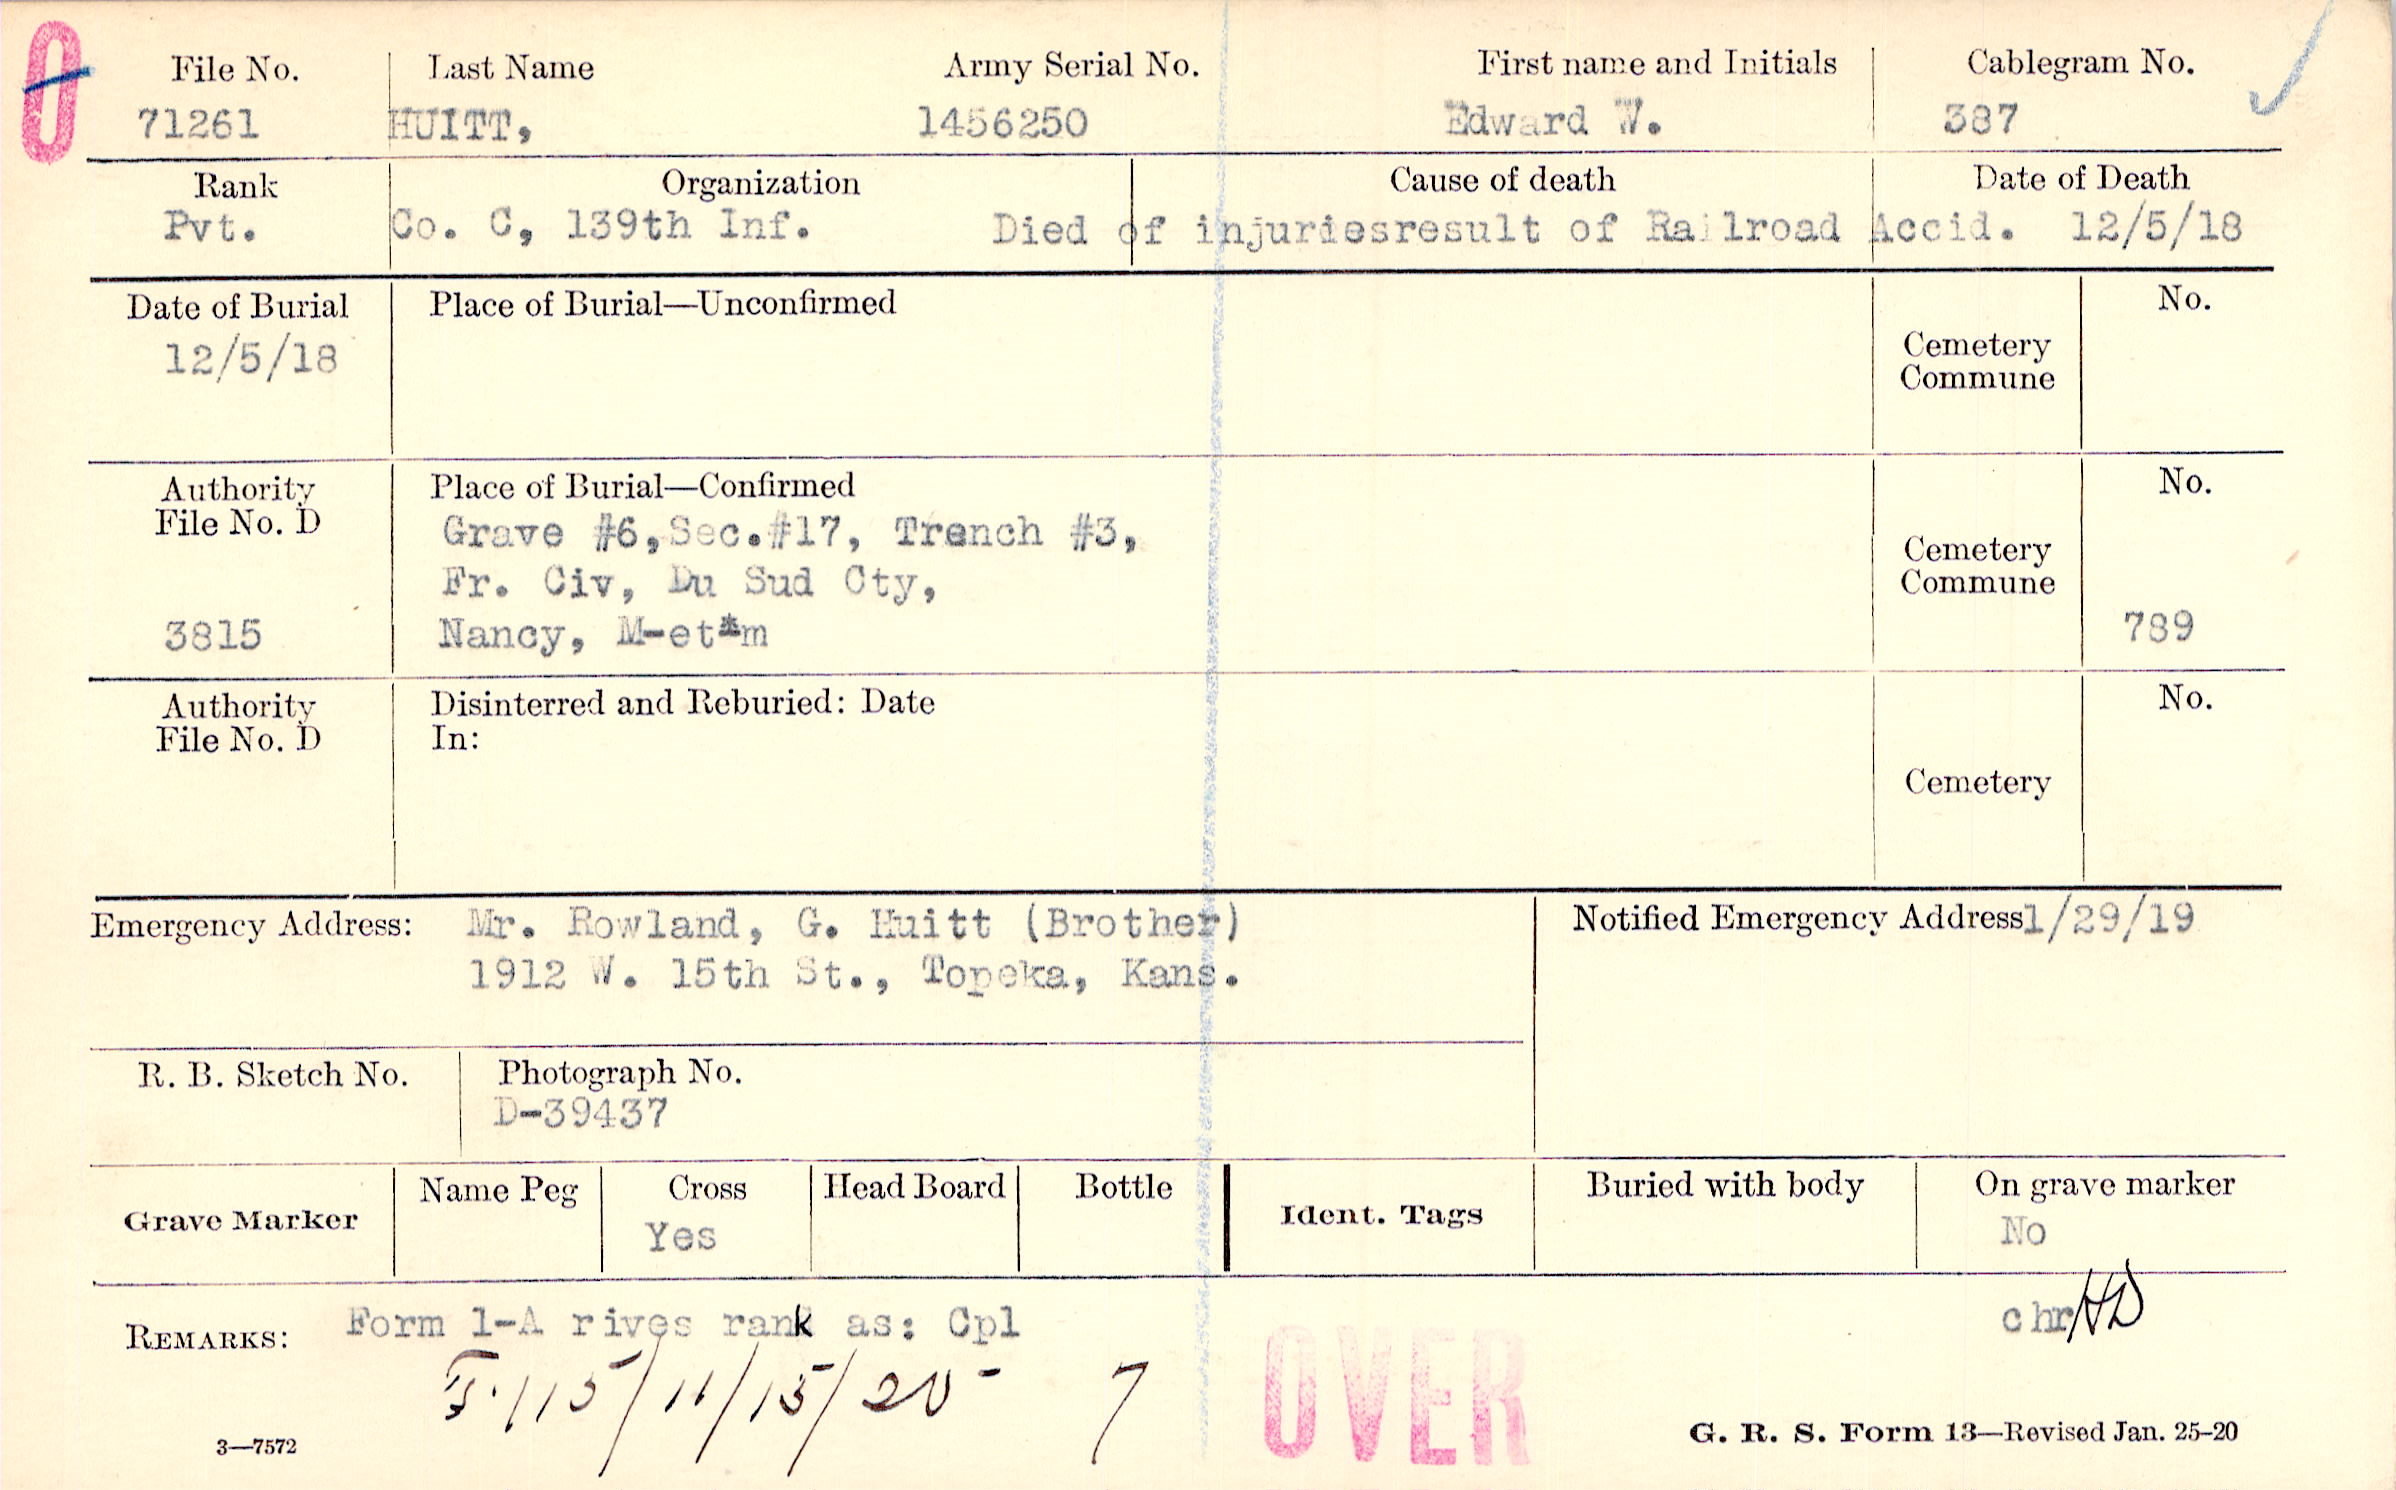 0
File No. Last Name Army Serial No. First name and Initials Cablegram No.
71261 HUITT, 1456250 Edward W. 387
Rank Organization Cause of death Date of Death
Pvt. Co. C, 139th Inf. Died of injuriesresult of Railroad Accid. 12/5/18
Date of Burial Place of Burial—Unconfirmed No.
12/5/18
Cemetery
Commune
Authority Place of Burial—Confirmed No.
File No. D Grave #6,Sec.#17, Trench #3,
Cemetery
Commune
Fr. Civ, Du Sud Cty,
3815 Nancy, M-et*m 789
Authority Disinterred and Reburied: Date No.
File No. D In:
Cemetery
Emergency Address: Mr. Rowland, G. Huitt (Brother) Notified Emergency Address 1/29/19
1912 W. 15th St., Topeka, Kans.
R. B. Sketch No. Photograph No.
D-39437
Grave Marker Name Peg Cross Head Board Bottle Ident. Tags Buried with body On grave marker
Yes No
REMARKS: Form 1-A rives rank as: Cpl chr HD
115/11/15/20- 7
OVER
3—7572 G. R. S. Form 13—Revised Jan. 25-20